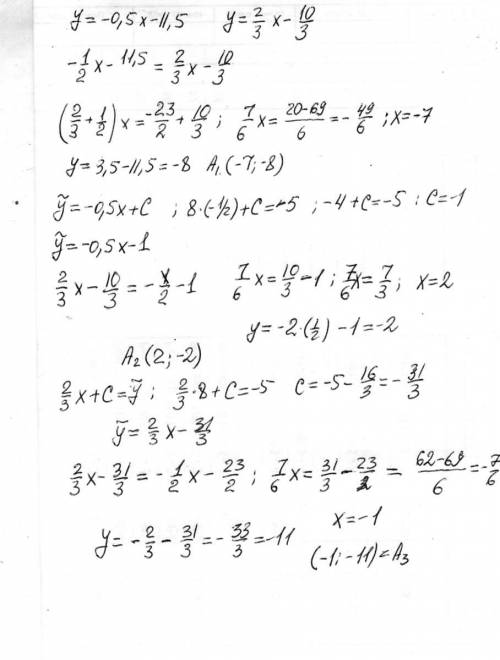 y = -0,5x-11,5   y = 2/3 x - 10/3
-1/2 x - 11,5 = 2/3 x - 10/3
(2/3 + 1/2) x = -23/2 + 10/3 ; 7/6 x = 20-69/6 = - 49/6 ; x = -7
y = 3,5-11,5 = -8   A₁ (-7; -8)
ỹ = -0,5x+C ; 8·(-1/2)+C = -5 ; -4+C = -5 ; C = -1
ỹ = -0,5x-1
2/3 x - 10/3 = - x/2 - 1   7/6 x = 10/3 - 1 ; 7/6 x = 7/3 ; x = 2
y = -2·(1/2) - 1 = -2
A₂ (2; -2)
2/3 x + C = ỹ ; 2/3 · 8 + C = -5   C = -5 - 16/3 = - 31/3
ỹ = 2/3 x - 31/3
2/3 x - 31/3 = - 1/2 x - 23/2 ; 7/6 x = 31/3 - 23/2 = 62-69/6 = -7/6
x = -1
y = - 2/3 - 31/3 = - 33/3 = -11
(-1; -11) = A₃